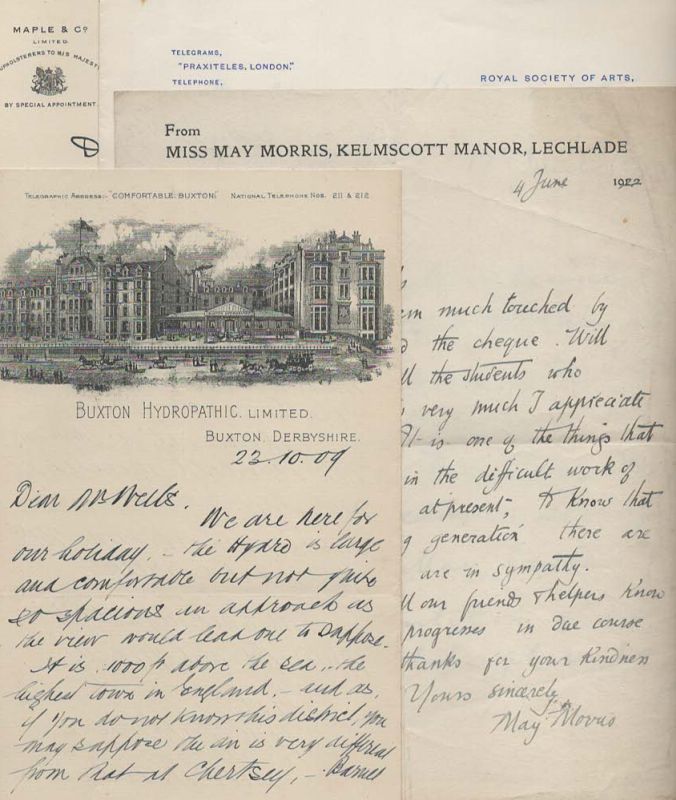 MAPLE & Co
LIMITED.
UPHOLSTERERS TO HIS MAJESTY
BY SPECIAL APPOINTMENT.
TELEGRAMS,
"PRAXITELES, LONDON."
TELEPHONE,
ROYAL SOCIETY OF ARTS,
From
MISS MAY MORRIS, KELMSCOTT MANOR, LECHLADE
4 June 1922
much touched by
the cheque. Will
the students who
very much I appreciate
It is one of the things that
in the difficult work of
at present, to know that
generation there are
are in sympathy.
our friends & helpers know
progresses in due course
thanks for your kindness
Yours sincerely
May Morris
TELEGRAPHIC ADDRESS:- "COMFORTABLE: BUXTON." NATIONAL TELEPHONE NOS. 211 & 212
BUXTON HYDROPATHIC. LIMITED.
BUXTON, DERBYSHIRE.
23.10.09
Dear Mr Wells.
We are here for
our holiday, - the Hydro is large
and comfortable but not quite
so spacious in approach as
the view would lead one to suppose.
It is 1000 ft above the sea, - the
highest town in England, - and as,
if you do not know this district, you
may suppose the air is very different
from that at Chertsey, -